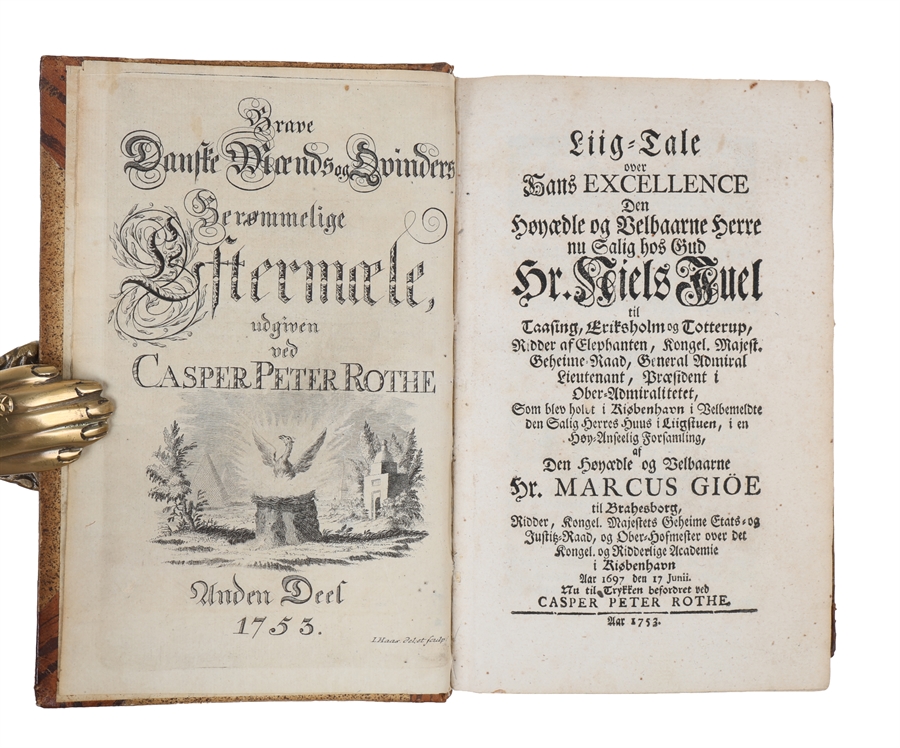 Brave
Danske Mænds og Qvinders
Berømmelige
Eftermæle,
udgiven
ved
CASPER PETER ROTHE
Anden Deel
1753.
I. Haas del. et sculp.
Liig-Tale
over
Hans EXCELLENCE
Den
Høyædle og Velbaarne Herre
nu Salig hos Gud
Hr. Niels Juel
til
Taasing, Eriksholm og Totterup,
Ridder af Elephanten, Kongel. Majest.
Geheime-Raad, General Admiral
Lieutenant, Præsident i
Ober-Admiralitetet,
Som blev holdt i Kiøbenhavn i Velbemeldte
den Salig Herres Huus i Liigstuen, i en
Høy-Anseelig Forsamling,
af
Den Høyædle og Velbaarne
Hr. MARCUS GIÖE
til Brahesborg,
Ridder, Kongel. Majestets Geheime Etats- og
Justitz-Raad, og Ober-Hofmester over det
Kongel. og Ridderlige Academie
i Kiøbenhavn
Aar 1697 den 17 Junii.
Nu til Trykken befordret ved
CASPER PETER ROTHE.
Aar 1753.